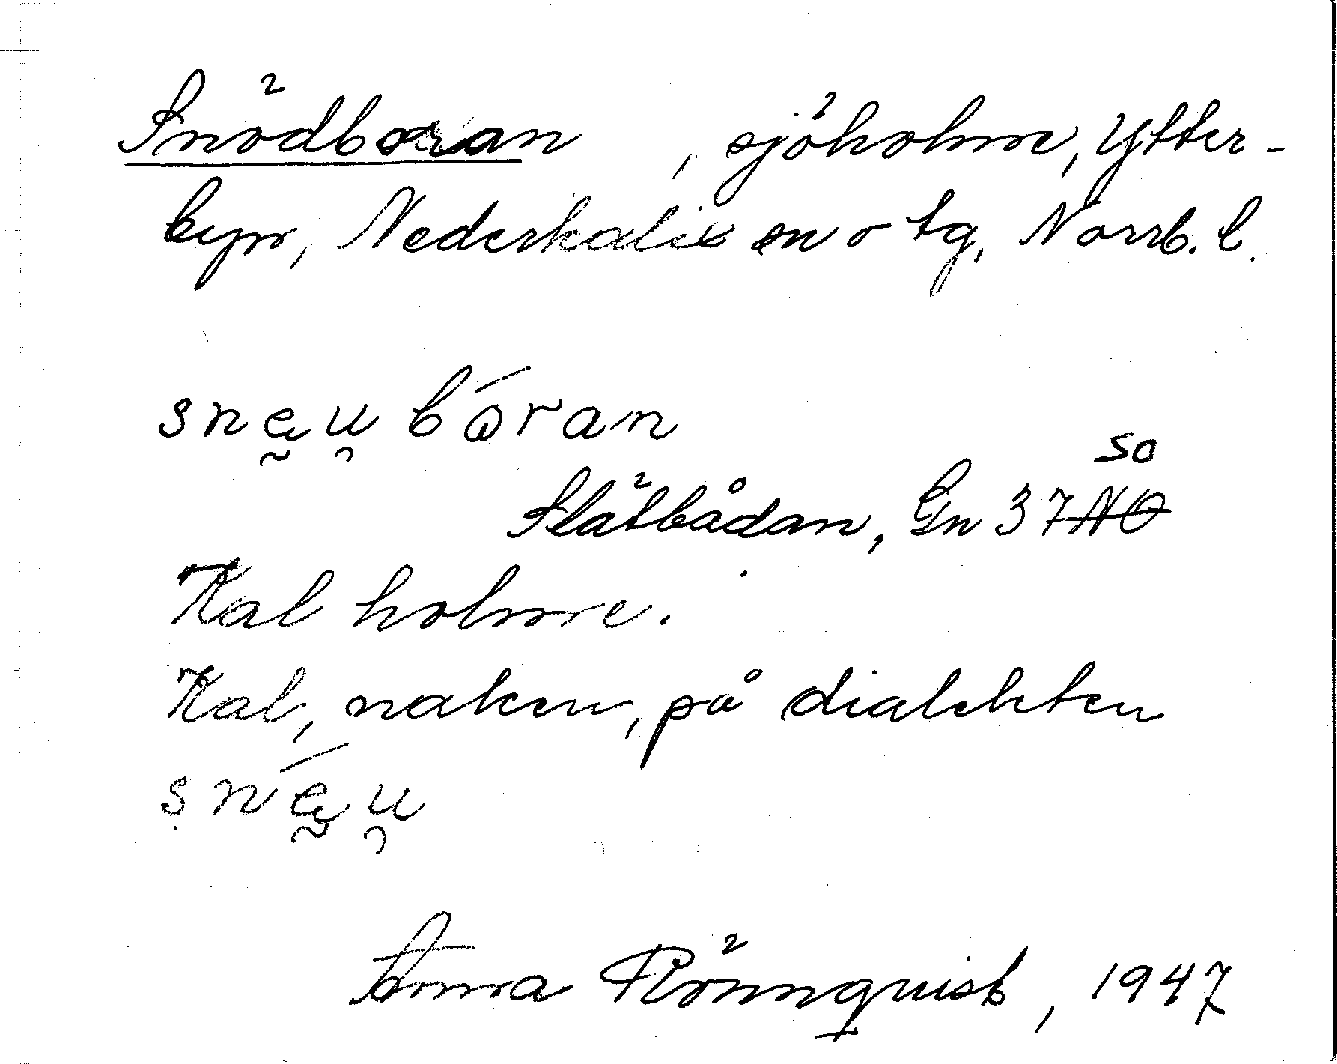 Snödboran, sjöholme, Ytter-
byn, Nederkalix sn o tg, Norrb. l.
snęu̯ bǫ́ran
SO
Slätbådan, Gn 37 NO
Kal holme.
Kal, naken, på dialekten
snę́u̯
Anna Rönnquist, 1947